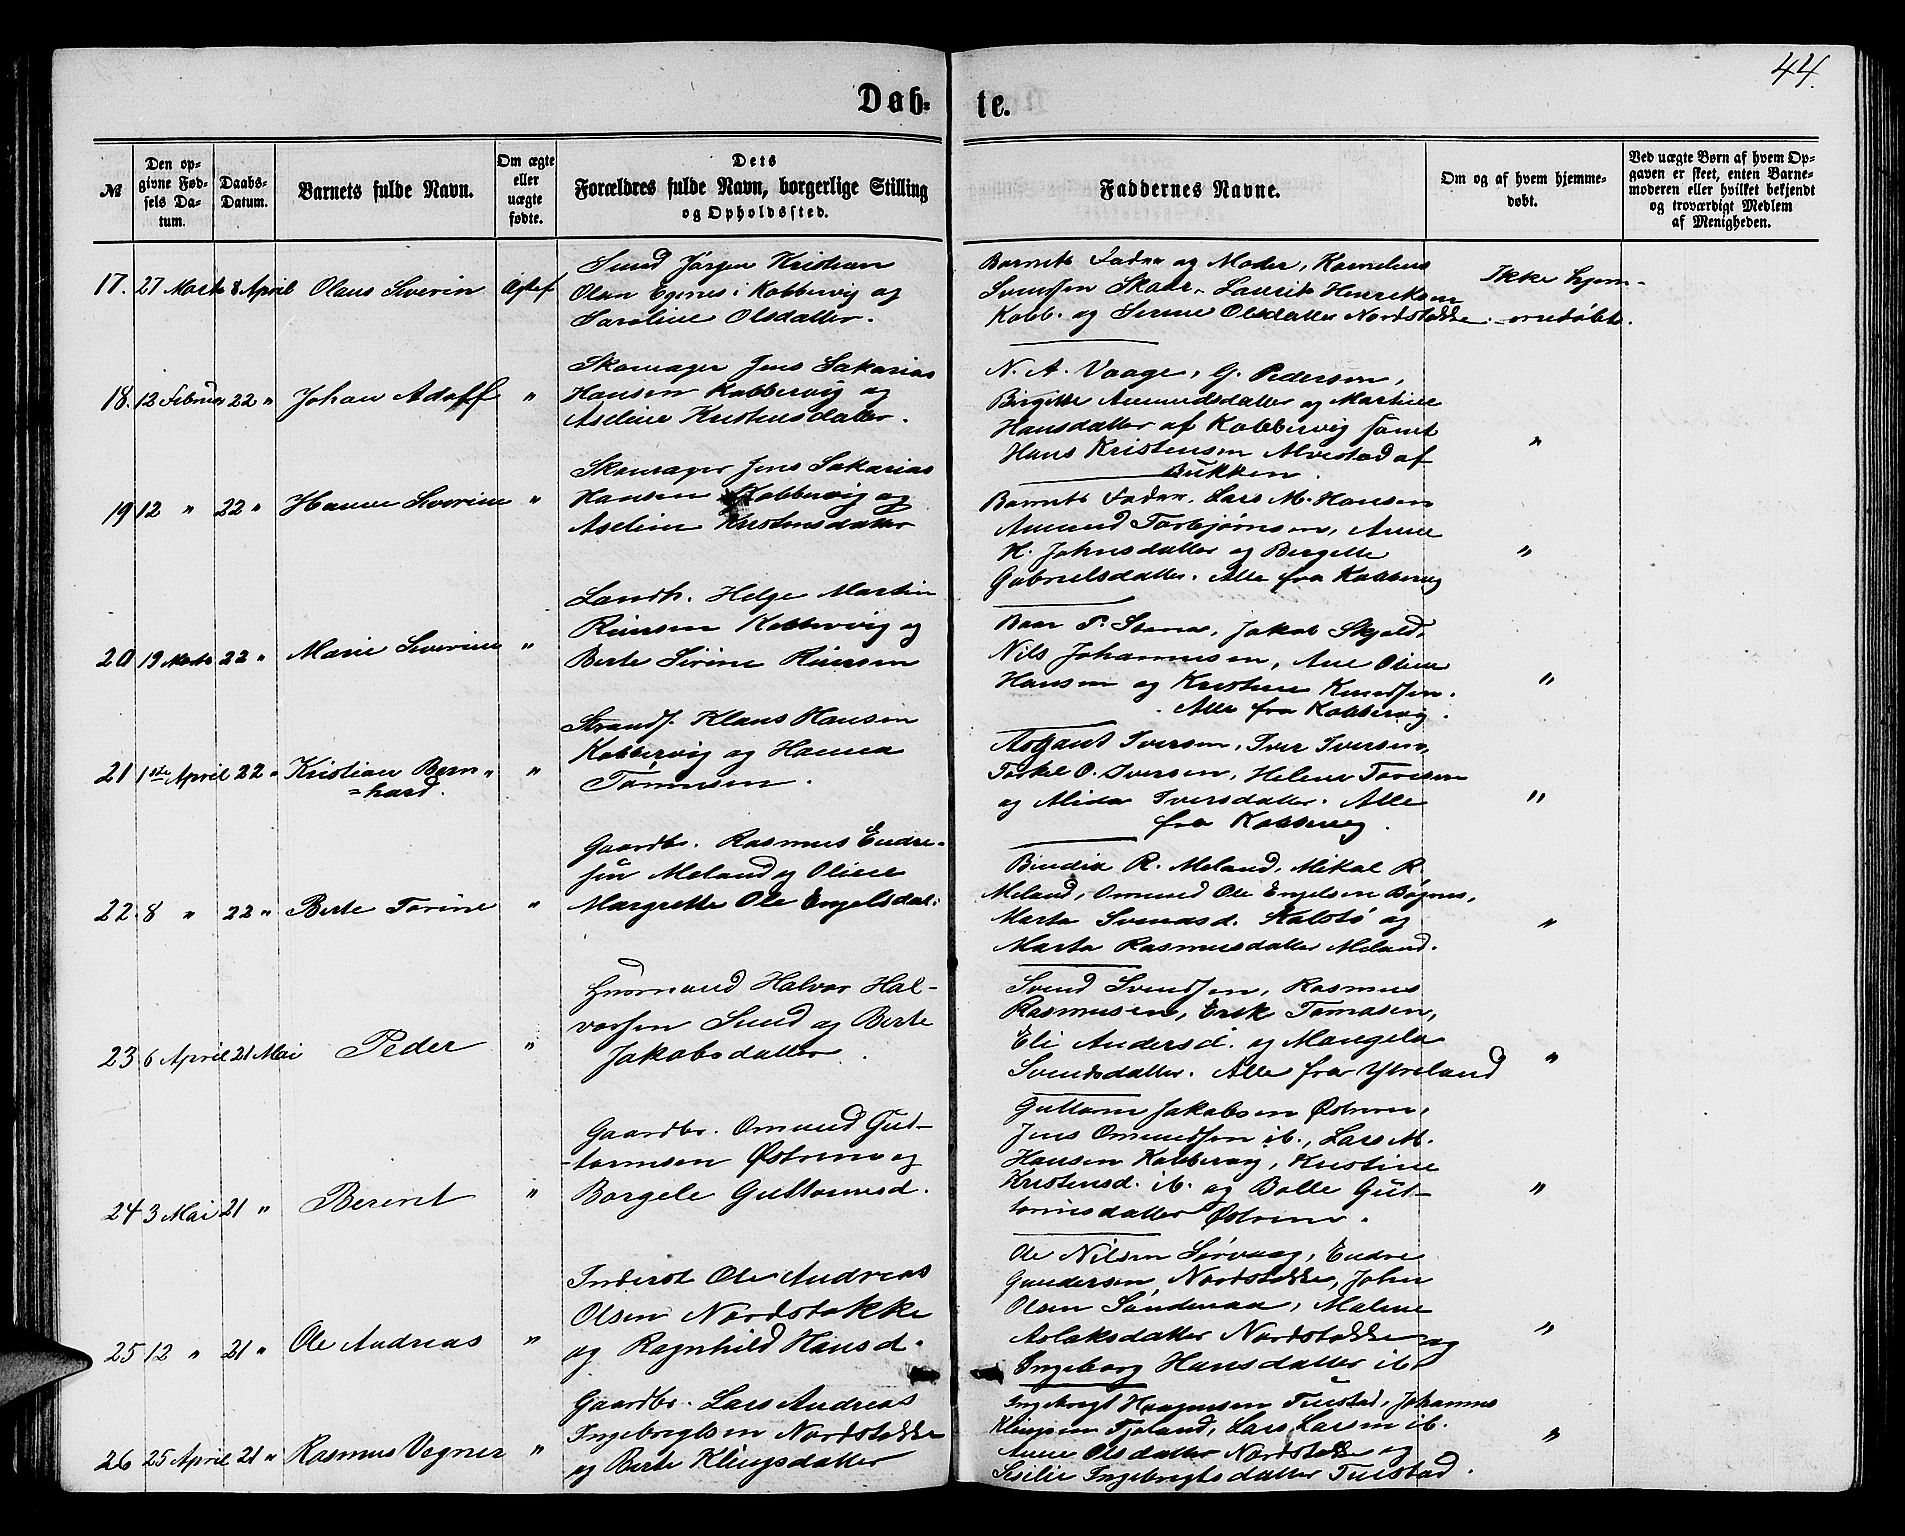 44.
Døb- te.
№
Den opgivne Fødsels Datum.
Daabs-Datum.
Barnets fulde Navn.
Om ægte eller uægte fødte.
Dets Forældres fulde Navn, borgerlige Stilling og Opholdssted.
Faddernes Navne.
Om og af hvem hjemmedøbt.
Ved uægte Børn af hvem Opgaven er skeet, enten Barnemoderen eller hvilket bekjendt og troværdigt Medlem af Menigheden.
17. 27 Marts 8 April Olaus Severin Ægtef
Smed Jørgen Kristian
Olsen Egenes i Kobbervig og
Karoline Olsdatter.
Barnets Fader og Moder, Kornelius
Svendsen Skaar, Laurits Henriksen
Kobb. og Serine Olsdatter Nordstokke.
Ikke hjem-
medøbt.
18. 12 Februar 22 " Johan Adolf "
Skomager Jens Sakarias
Hansen Kobbervig og
Aseline Kristensdatter.
N. A. Vaage, G. Pedersen,
Birgitte Amundsdatter og Martine
Hansdatter af Kobbervig samt
Hans Kristensen Alvestad af
Bukken.
"
19 12 " 22 " Hanne Severine "
Skomager Jens Sakarias
Hansen Kobbervig og
Aseline Kristensdatter
Barnets Fader, Lars M. Hansen
Amund Torbjørnsen, Anne
H. Johnsdatter og Bergitte
Gabrielsdatter. Alle fra Kobbervig
"
20 19 Marts 22 " Marie Severine "
Landh. Helge Martin
Riversen Kobbervig og
Berte Sirine Riversen
Baar P. Stena, Jakob Skjold,
Nils Johannesen, Ane Oline
Hansen og Kristine Knudsen.
Alle fra Kobbervig.
"
21 1ste April 22 " Kristian Bern-
=hard. "
Strands. Klaus Hansen
Kobbervig og Hanna
Tønnesen.
Asgaut Iversen, Iver Iversen,
Torkel O. Iversen, Helene
og Alida Iversdatter. Alle
fra Kobbervig.
"
22. 8 " 22 " Berte Torine "
Gaardbr. Rasmus Endre-
sen Meland og Oline
Margrette Ole Engelsdat:
Bendix R. Meland, Mikal R.
Meland, Omund Ole Engelsen Bøgnes,
Marta Svensd. Kalstø og
Marta Rasmusdatter Meland.
"
23 6 April 21 Mai Peder "
Huusmand Halvor Hal-
vorsen Sund og Berte
Jakobsdatter.
Svend Svendsen, Rasmus
Rasmusen, Erik Tomasen,
Eli Andersd. og Mangela
Svendsdatter. Alle fra Ytreland
"
24 3 Mai 21 " Berent "
Gaardbr. Omund Gut-
-tormsen Østrem og
Borgele Guttormsd.
Guttorm Jakobsen Østrem,
Jens Omundsen ib., Lars M.
Hansen Kobbervig, Kristine
Kristensd. ib. og Bolle Gut-
tormsdatter Østrem.
"
25 12 " 21 " Ole Andreas "
Inderst Ole Andreas
Olsen Nordstokke
og Ragnhild Hansd.
Ole Nilsen Sørvaag, Endre
Gundersen Nordstokke, John
Olsen Søndenaa, Malene
Aslaksdatter Nordstokke og
Ingeborg Hansdatter ib.
"
26 25 April 21 " Rasmus Vegner "
Gaardbr. Lars Andreas
Ingebregtsen Nordstokke
og Berte Klingsdatter
Ingebregt Tuestad, Johannes
Klingsen Fjeland, Lars Larsen ib.
Anne Olsdatter Nordstokke og
Sesilie Ingebregtsdatter Tuestad.
"